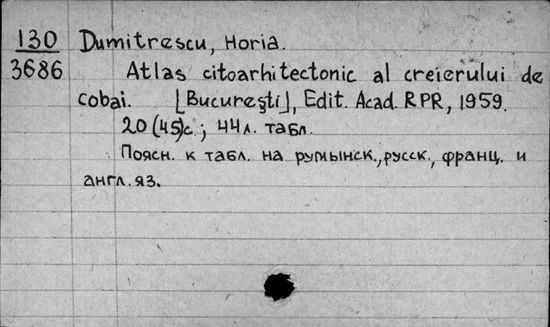 130 Dumitrescu, Horia.
3686 Atlas citoarhitectonic al creierului de
cobai. [Bucureşti], Edit. Acad. RPR, 1959.
20 (45)с; 44 л. табл.
Поясн. к табл. на румынск., русск., франц. и
англ. яз.